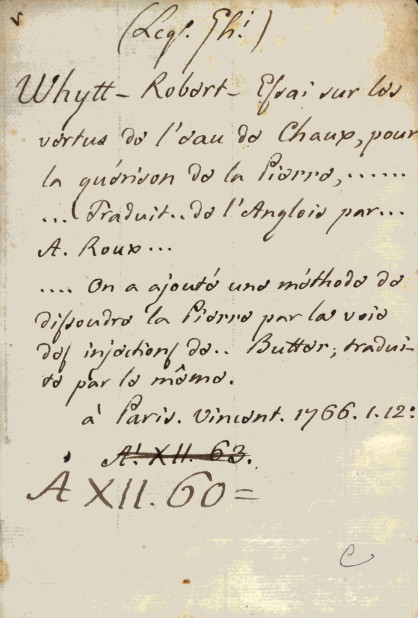 (Leqs. Ghi)
Whytt - Robert - Essai sur les
vertus de l'eau de Chaux, pour
la guérison de la Pierre, ......
... Traduit .. de l'Anglois par ...
A. Roux ...
.... On a ajouté une méthode de
dissoudre la Pierre par la voie
des injections de .. Butter; tradui-
te par le même.
à Paris. Vincent. 1766. 1. 12:
A. XII. 63.
A XII. 60=